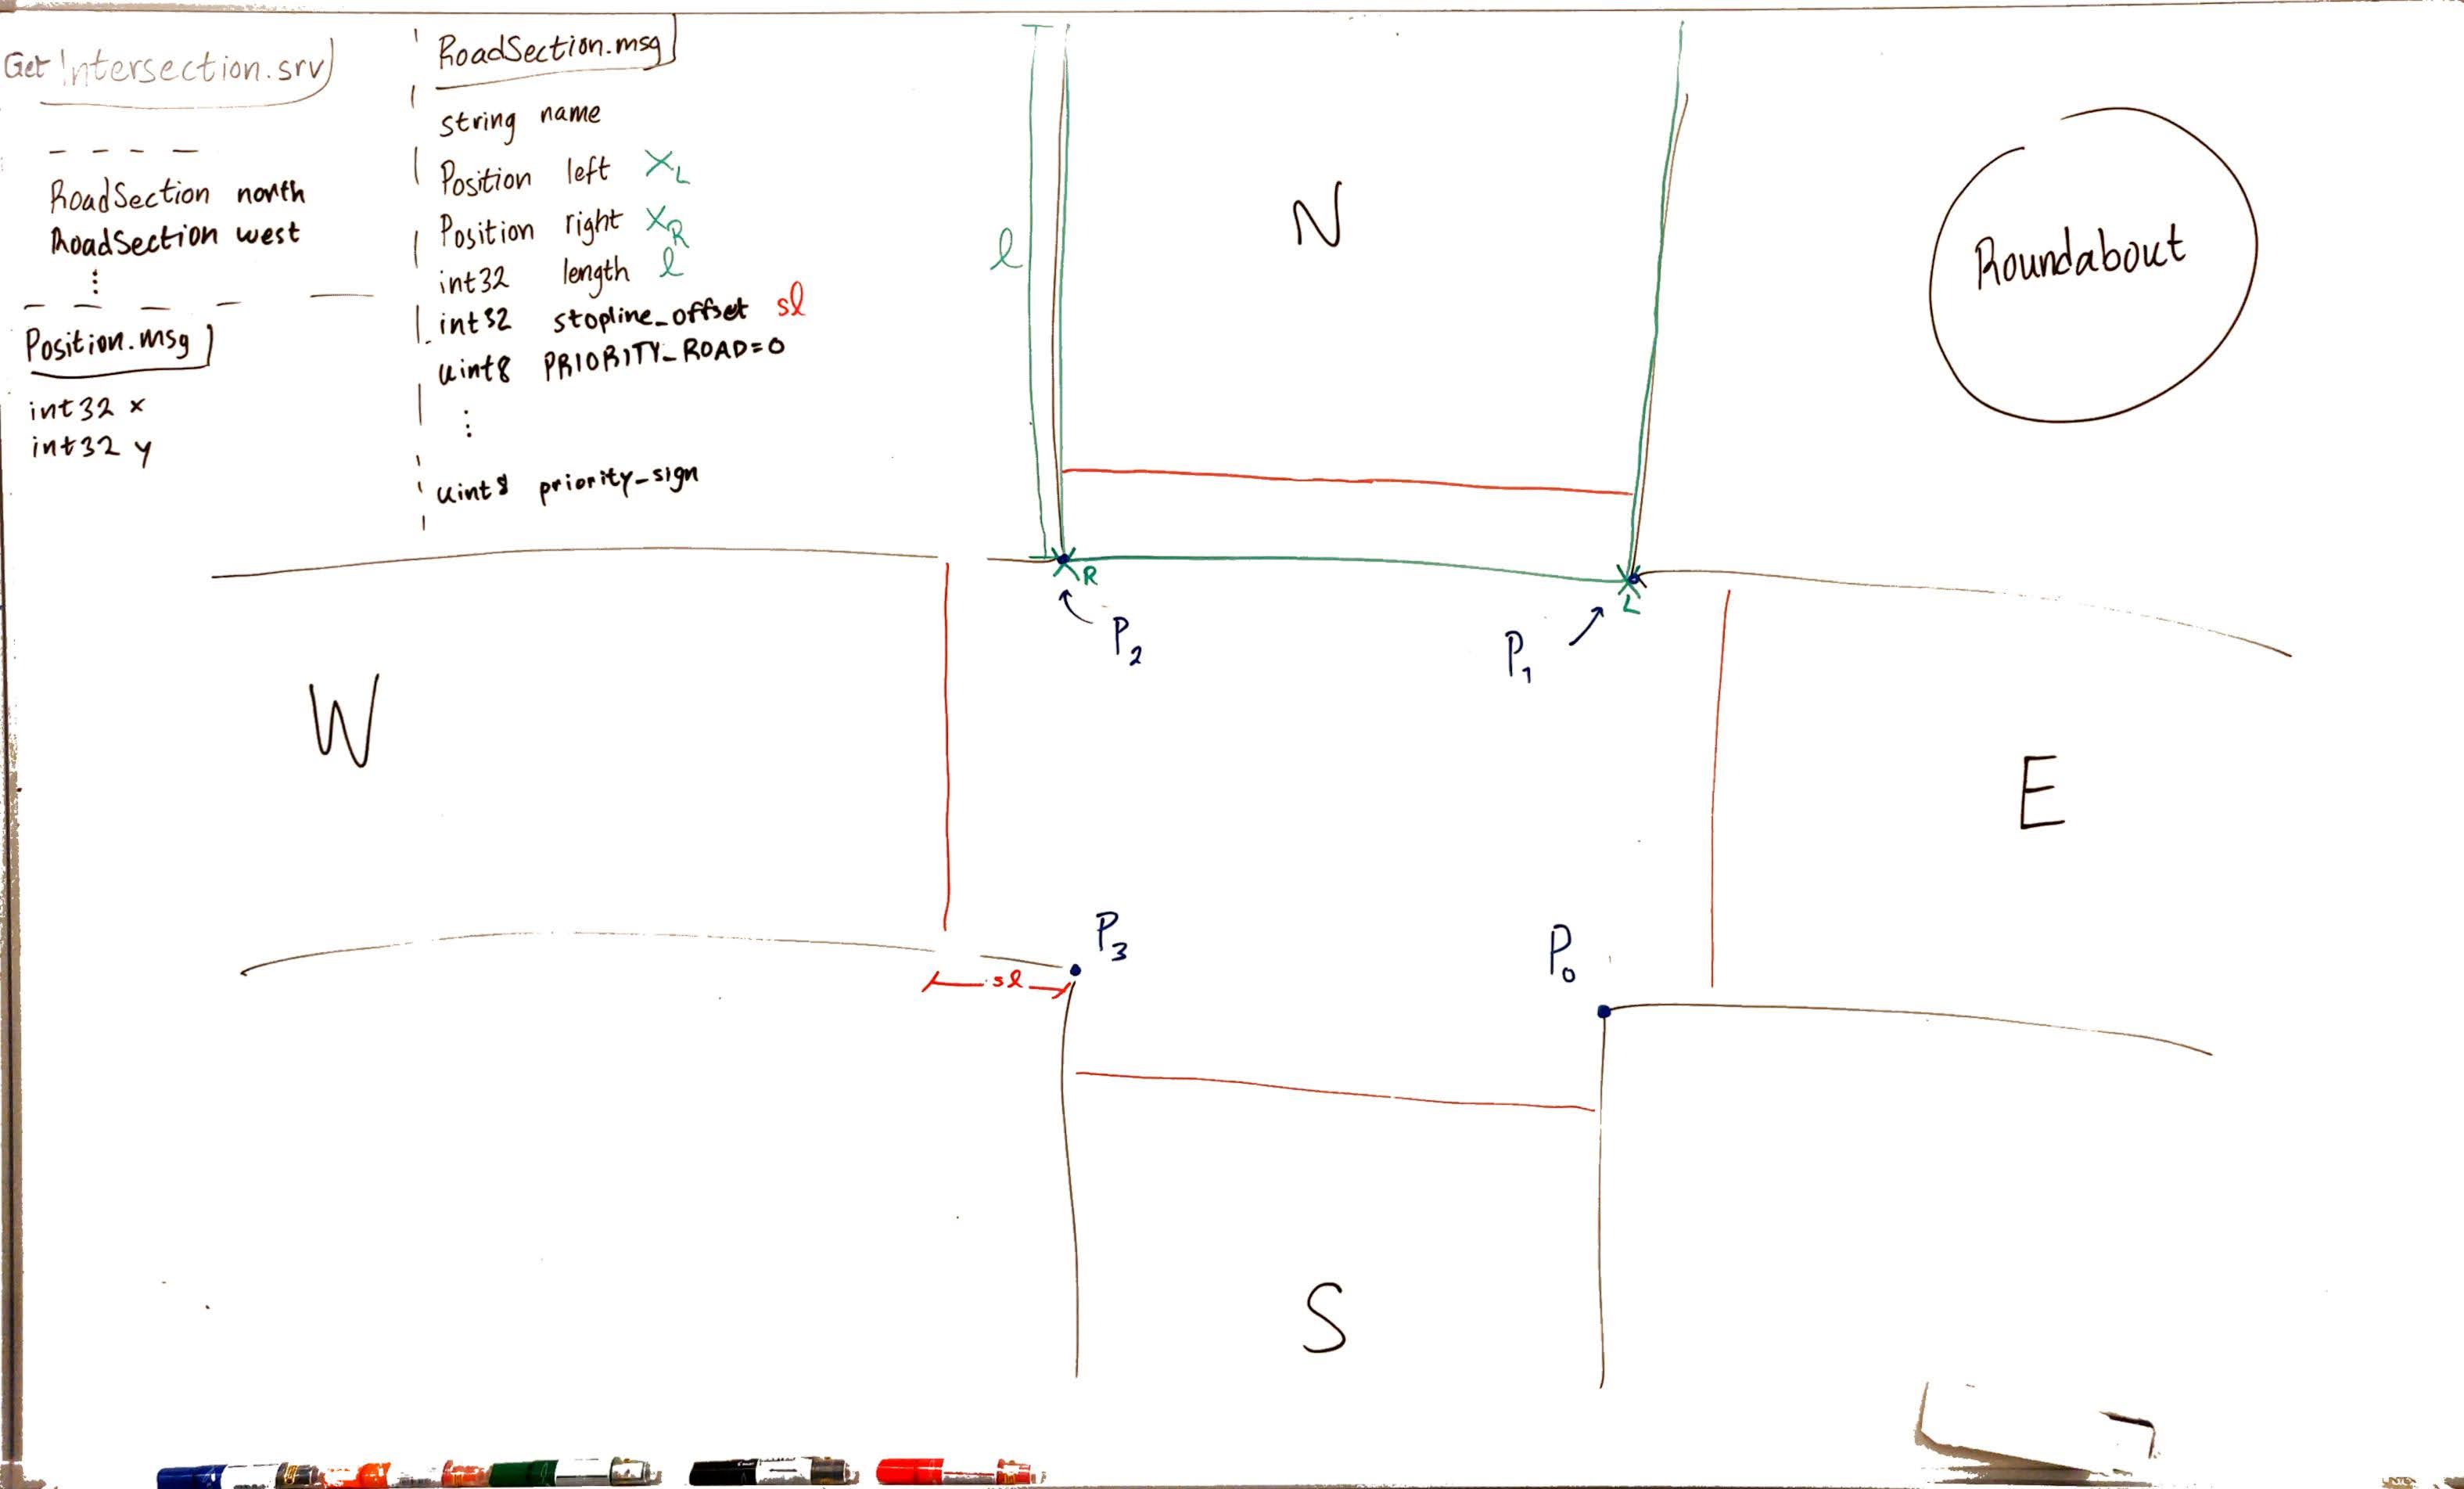 Get Intersection.srv
RoadSection north
RoadSection west
⋮
Position.msg
int32 x
int32 y
RoadSection.msg
string name
Position left X_L
Position right X_R
int32 length l
int32 stopline_offset sl
uint8 PRIORITY_ROAD=0
⋮
uint8 priority_sign
l
N
Roundabout
R
L
P₂
P₁
W
E
P₃
P₀
sl
S